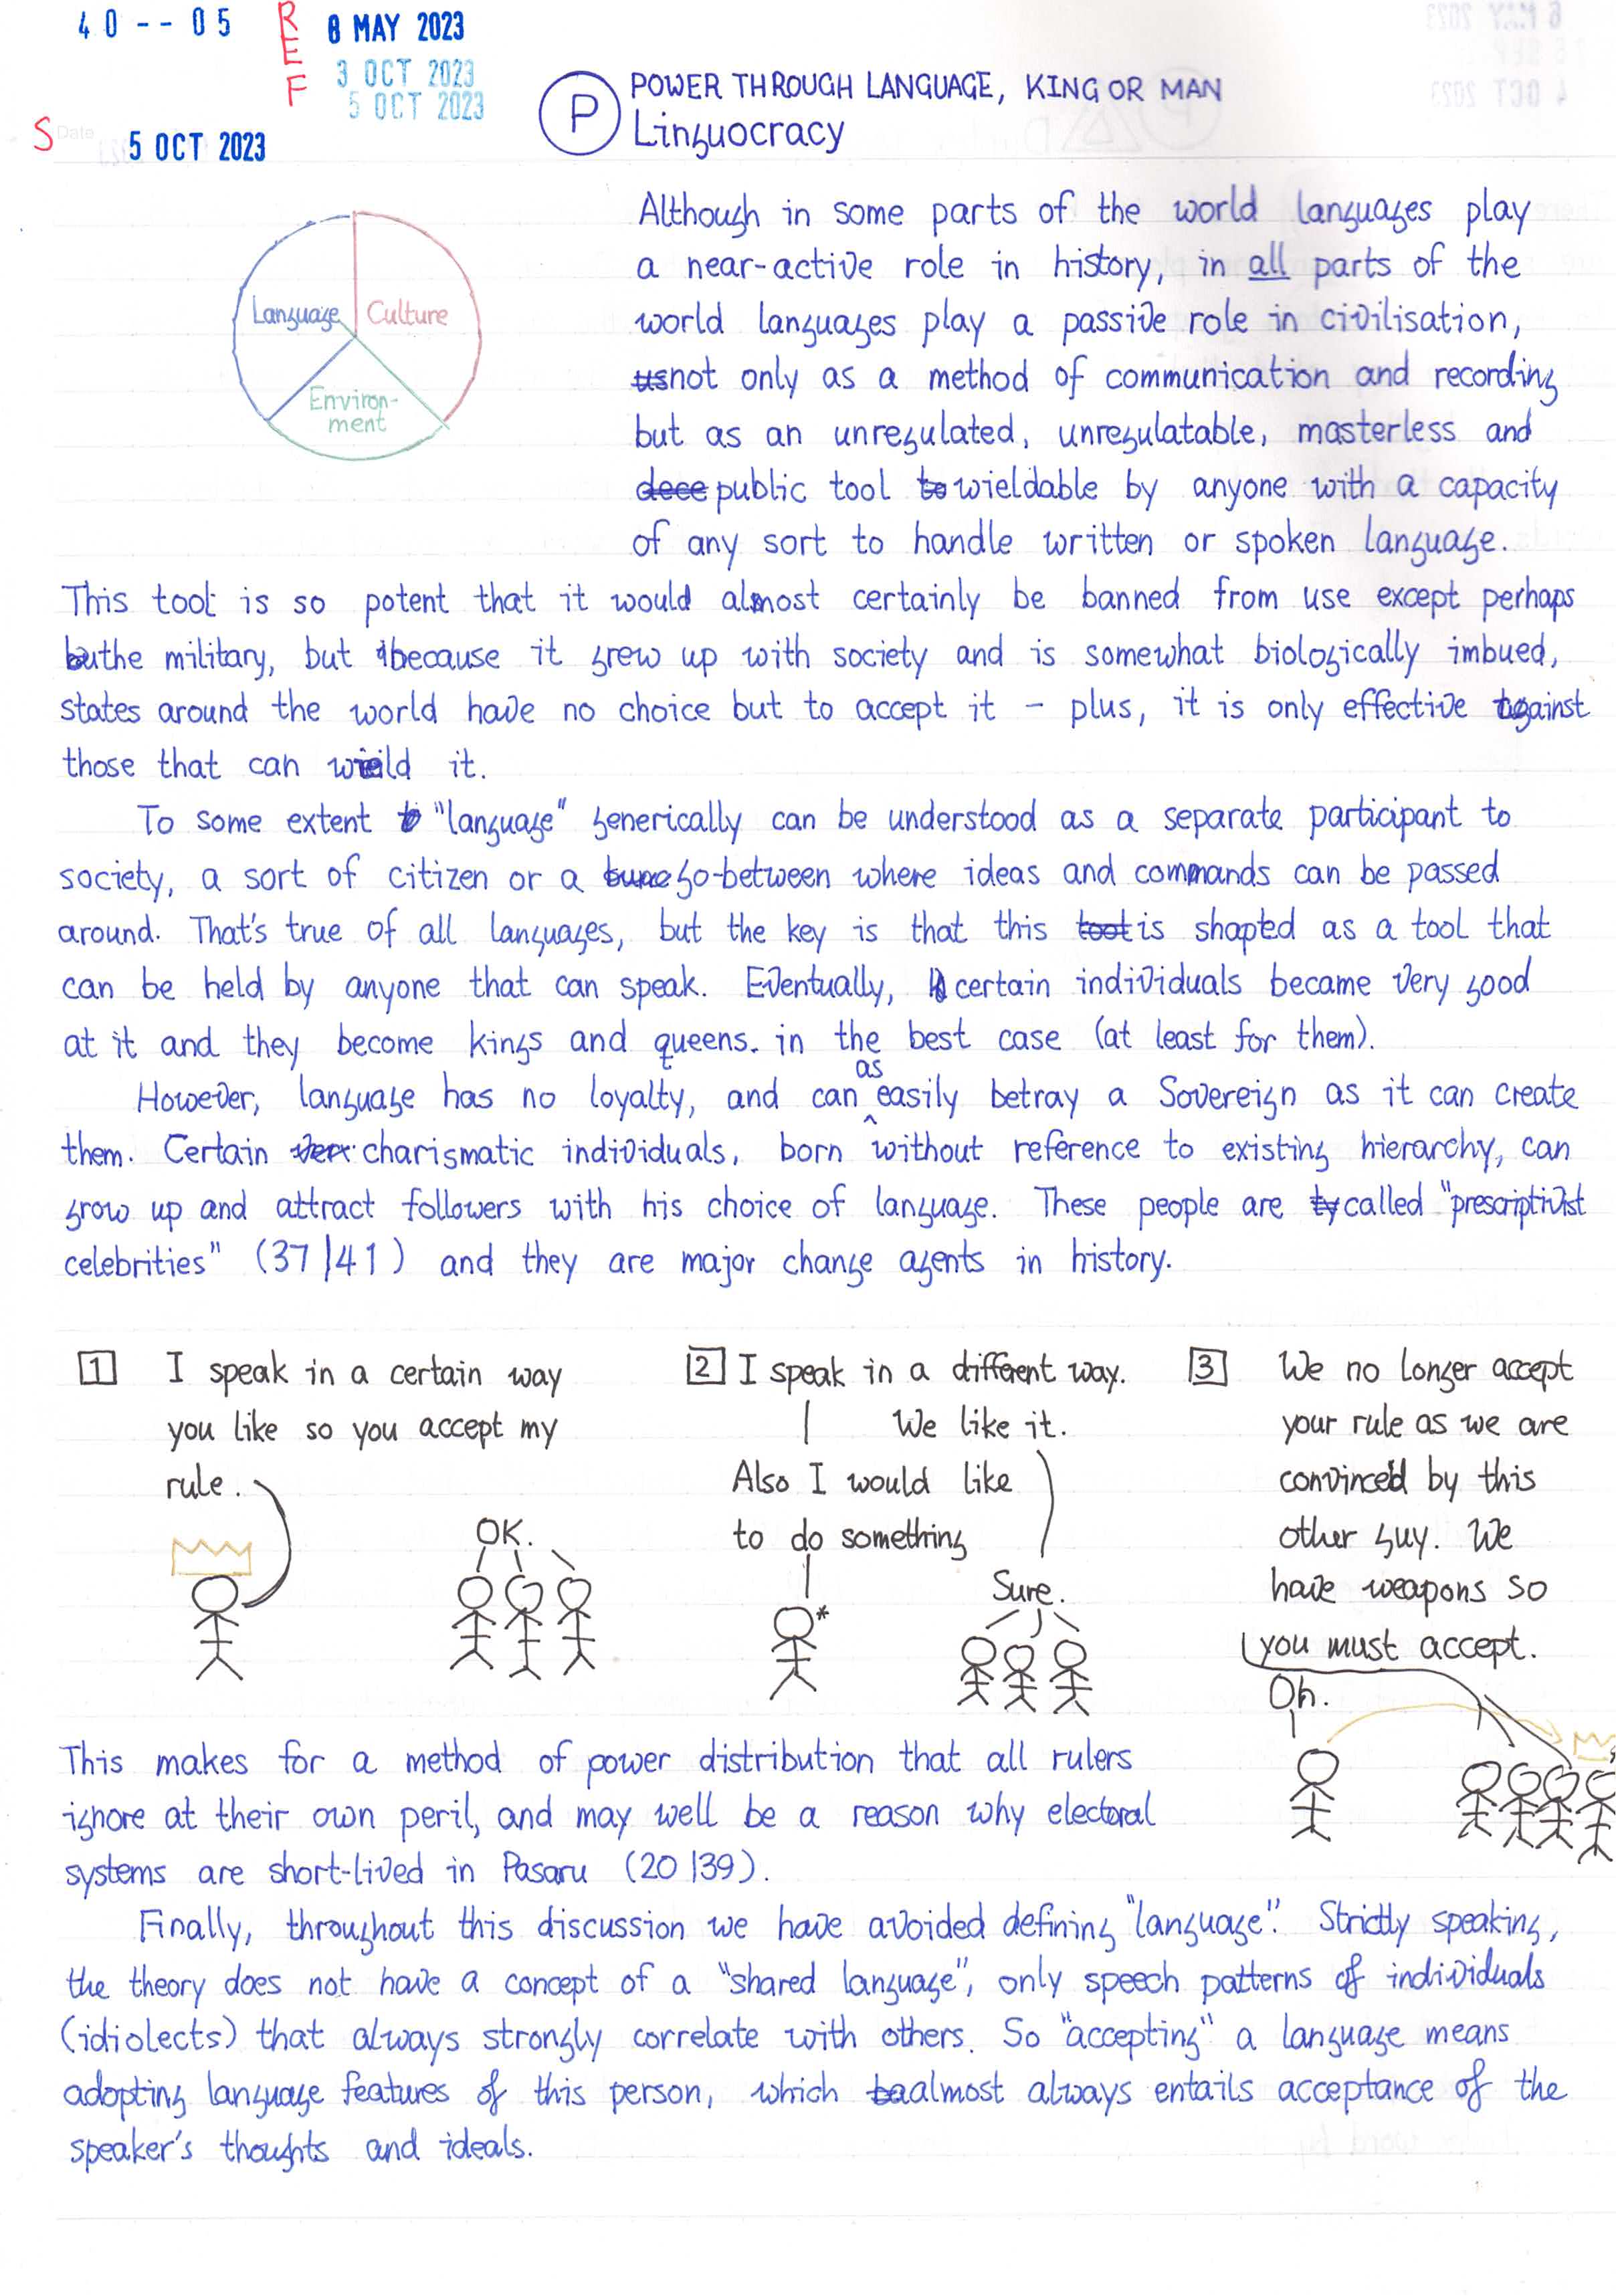 40--05
REF
8 MAY 2023
3 OCT 2023
5 OCT 2023
S Date 5 OCT 2023
P
POWER THROUGH LANGUAGE, KING OR MAN
Linguocracy
Language
Culture
Environ-
ment
Although in some parts of the world languages play
a near-active role in history, in all parts of the
world languages play a passive role in civilisation,
not only as a method of communication and recording
but as an unregulated, unregulatable, masterless and
public tool wieldable by anyone with a capacity
of any sort to handle written or spoken language.
This tool is so potent that it would almost certainly be banned from use except perhaps
the military, but because it grew up with society and is somewhat biologically imbued,
states around the world have no choice but to accept it - plus, it is only effective against
those that can wield it.
To some extent "language" generically can be understood as a separate participant to
society, a sort of citizen or a go-between where ideas and commands can be passed
around. That's true of all languages, but the key is that this is shaped as a tool that
can be held by anyone that can speak. Eventually, certain individuals became very good
at it and they become kings and queens. in the best case (at least for them).
However, language has no loyalty, and can as easily betray a Sovereign as it can create
them. Certain charismatic individuals, born without reference to existing hierarchy, can
grow up and attract followers with his choice of language. These people are called "prescriptivist
celebrities" (37|41) and they are major change agents in history.
1 I speak in a certain way
you like so you accept my
rule.
OK.
2 I speak in a different way.
We like it.
Also I would like
to do something
Sure.
3 We no longer accept
your rule as we are
convinced by this
other guy. We
have weapons so
you must accept.
Oh.
This makes for a method of power distribution that all rulers
ignore at their own peril, and may well be a reason why electoral
systems are short-lived in Pasaru (20|39).
Finally, throughout this discussion we have avoided defining "language". Strictly speaking,
the theory does not have a concept of a "shared language", only speech patterns of individuals
(idiolects) that always strongly correlate with others. So "accepting" a language means
adopting language features of this person, which almost always entails acceptance of the
speaker's thoughts and ideals.